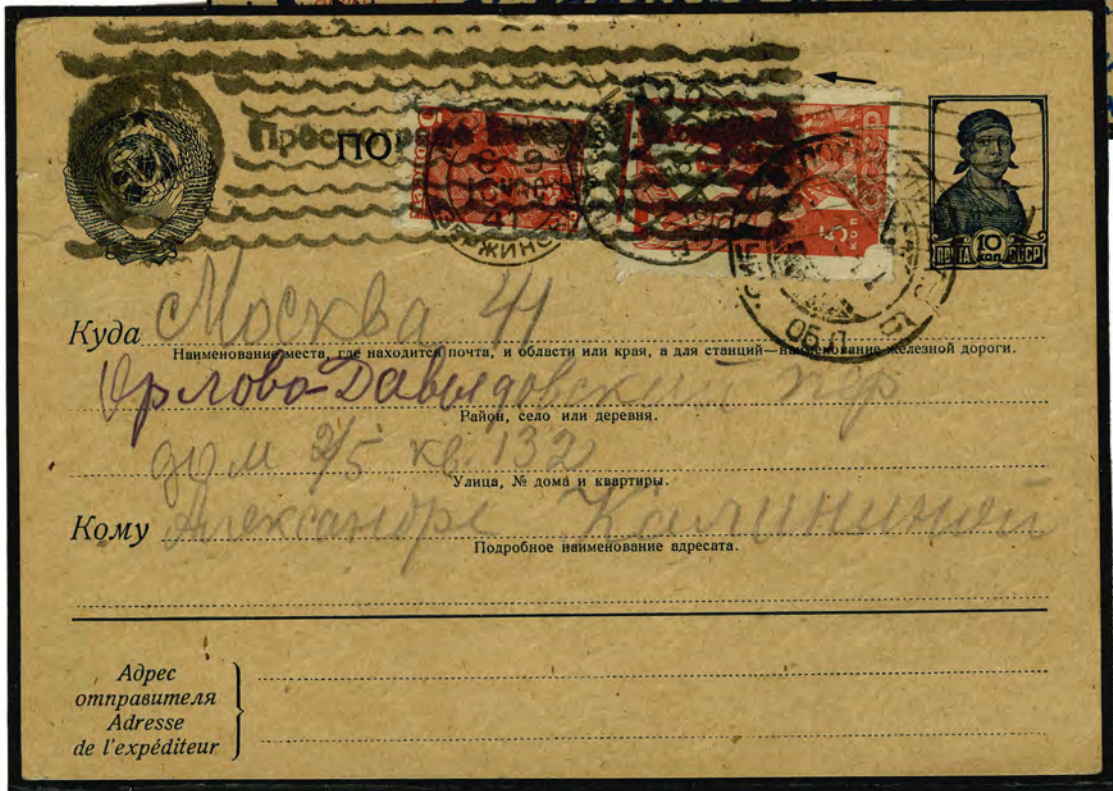 ПО
ПОЧТА 10 КОП. СССР
5 КОП
ОБЛ
41
Куда Москва 41
Наименование места, где находится почта, и области или края, а для станций—наименование железной дороги.
Орлово-Давыдовский пер
Район, село или деревня.
дом 2/5 кв. 132
Улица, № дома и квартиры.
Кому Александре Калининой
Подробное наименование адресата.
Адрес
отправителя
Adresse
de l'expéditeur